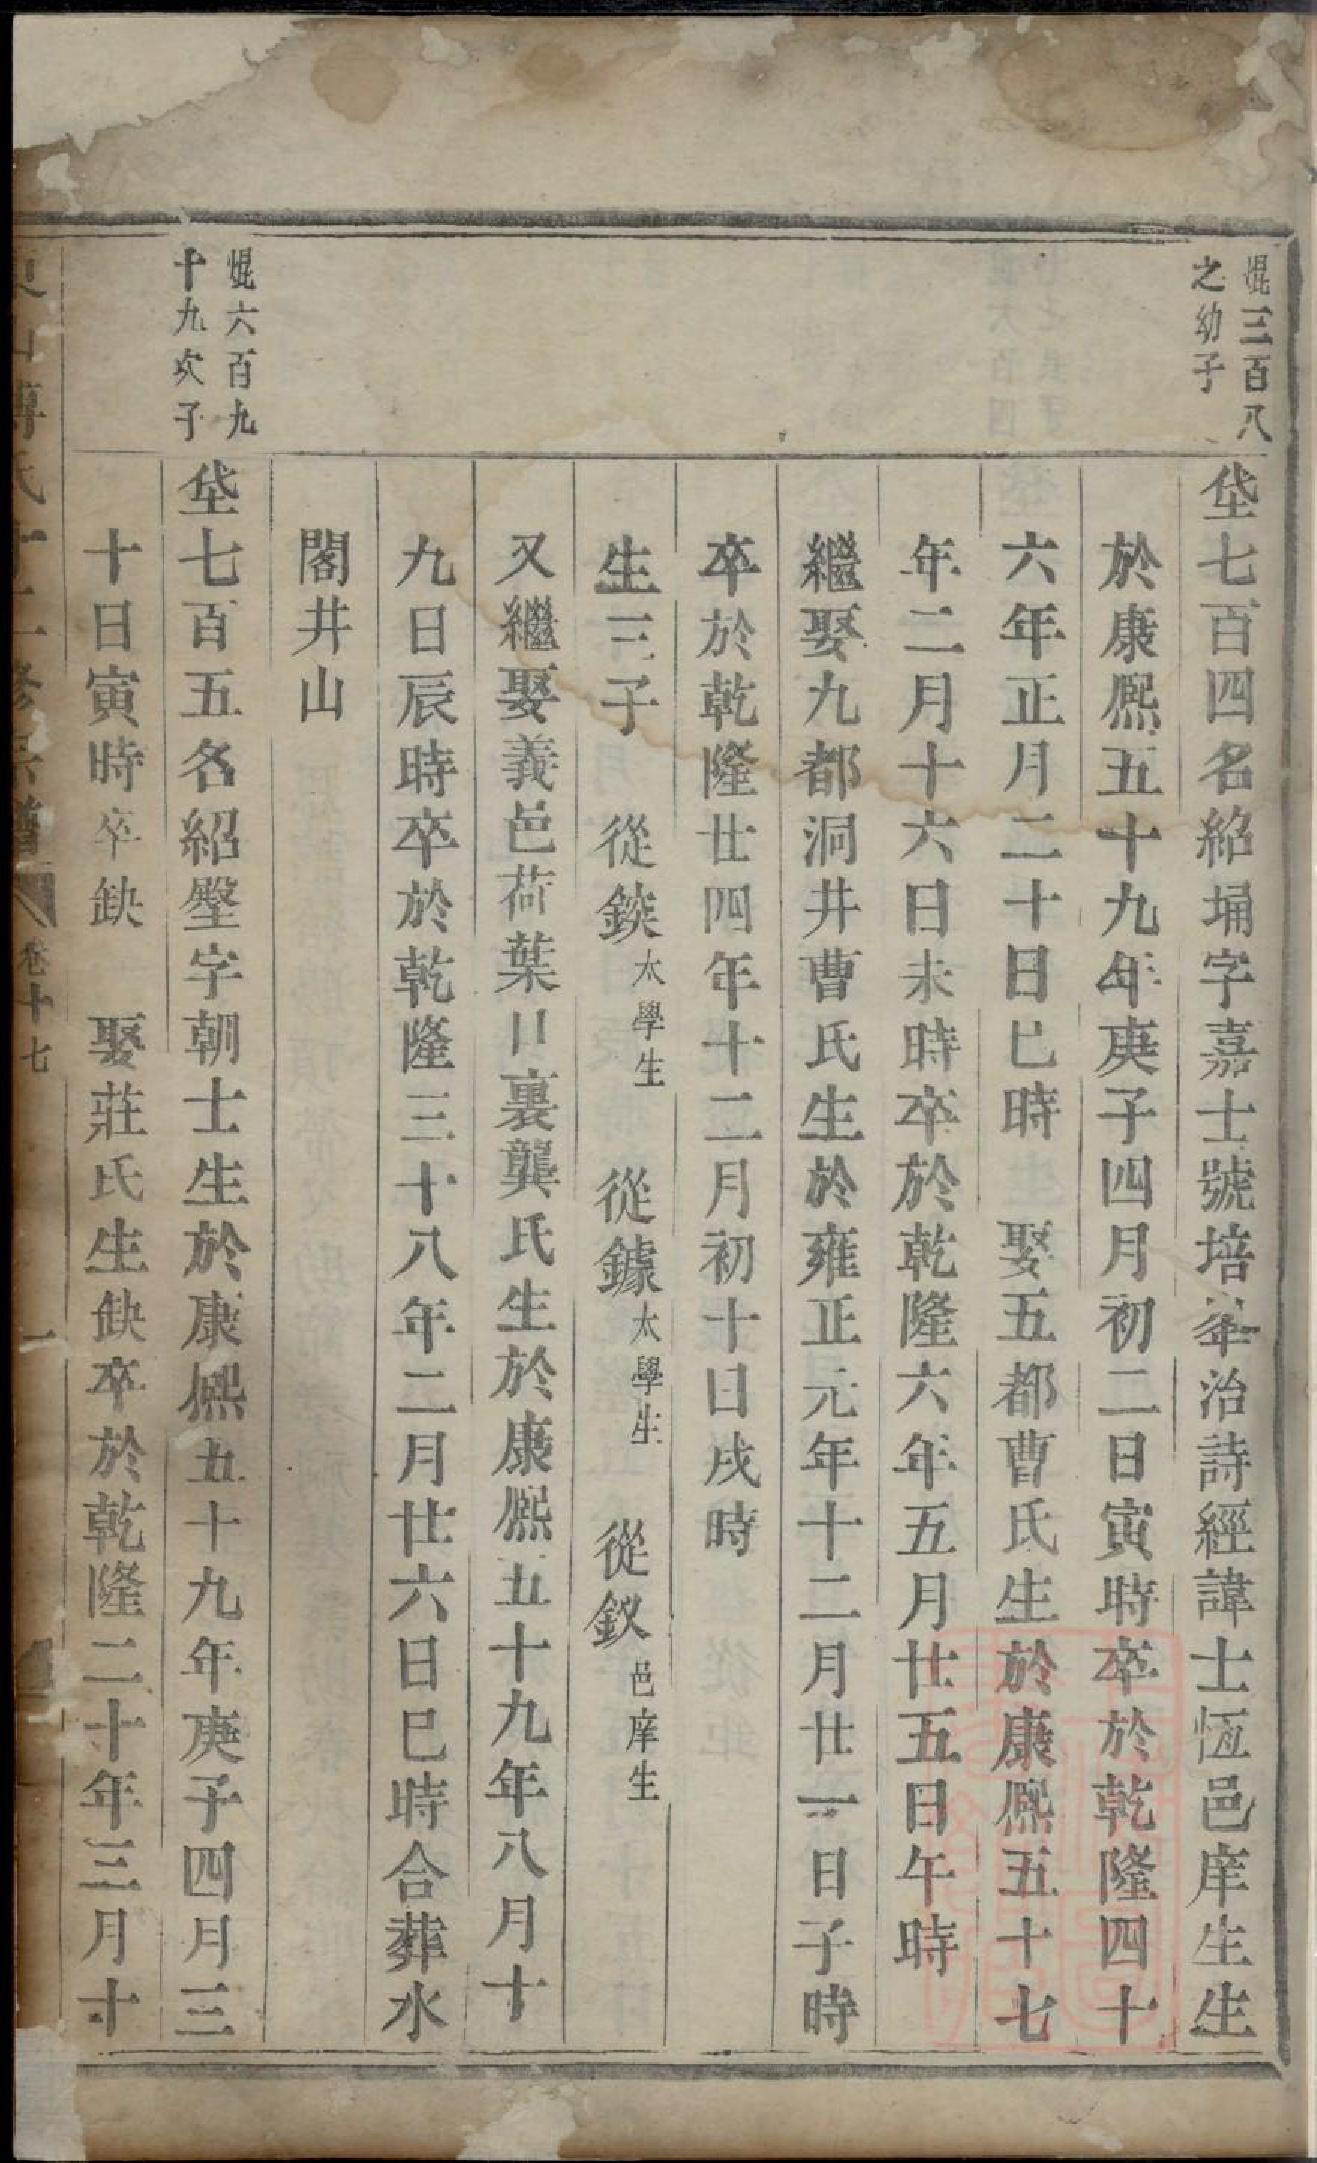 焜三百八
之幼子
垡七百四名紹埇字嘉士號培峯治詩經諱士恆邑庠生生
於康熈五十九年庚子四月初二日寅時卒於乾隆四十
六年正月二十日巳時 娶五都曹氏生於康熈五十七
年二月十六日未時卒於乾隆六年五月廿五日午時
繼娶九都洞井曹氏生於雍正元年十二月廿二日子時
卒於乾隆廿四年十二月初十日戌時
生三子 從錟太學生 從鐻太學生 從釵邑庠生
又繼娶義邑荷葉口裏龔氏生於康熈五十九年八月十
九日辰時卒於乾隆三十八年二月廿六日巳時合葬水
閣井山
焜六百九
十九次子
垡七百五名紹壂字朝士生於康熈五十九年庚子四月三
十日寅時卒缺 娶莊氏生缺卒於乾隆二十年三月十
卷十七 一